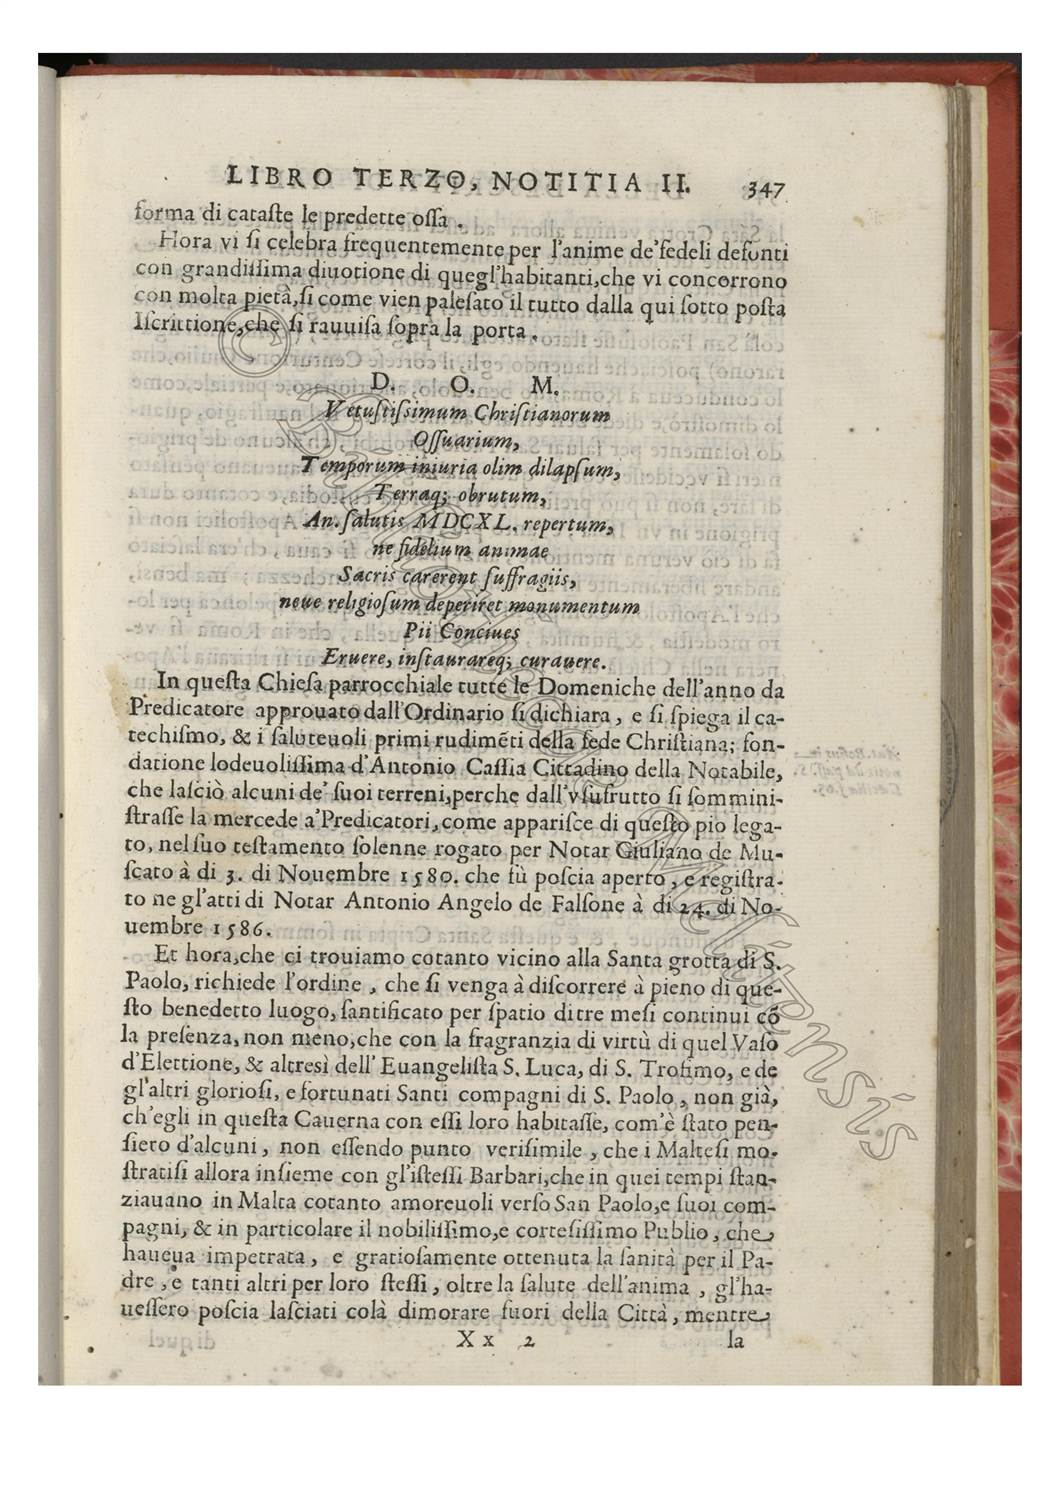 LIBRO TERZO, NOTITIA II. 347
forma di cataſte le predette oſſa .
Hora vi ſi celebra frequentemente per l'anime de'fedeli defonti
con grandiſſima diuotione di quegl'habitanti,che vi concorrono
con molta pietà,ſi come vien paleſato il tutto dalla qui ſotto poſta
Iſcrittione,che ſi rauuiſa ſopra la porta .
D. O. M.
Vetuſtiſsimum Chriſtianorum
Oſſuarium,
Temporum iniuria olim dilapſum,
Terraq; obrutum,
An. ſalutis MDCXL. repertum,
ne fidelium animae
Sacris carerent ſuffragiis,
neue religioſum deperiret monumentum
Pii Conciues
Eruere, inſtaurareq; curauere.
In queſta Chieſa parrocchiale tutte le Domeniche dell'anno da
Predicatore approuato dall'Ordinario ſi dichiara, e ſi ſpiega il ca-
techiſmo, & i ſaluteuoli primi rudimẽti della fede Chriſtiana; fon-
datione lodeuoliſſima d'Antonio Caſſia Cittadino della Notabile,
che laſciò alcuni de' ſuoi terreni,perche dall'vſufrutto ſi ſommini-
ſtraſſe la mercede a'Predicatori,come appariſce di queſto pio lega-
to, nel ſuo teſtamento ſolenne rogato per Notar Giuliano de Mu-
ſcato à di 3. di Nouembre 1580. che fù poſcia aperto, e regiſtra-
to ne gl'atti di Notar Antonio Angelo de Falſone à di 24. di No-
uembre 1586.
Et hora,che ci trouiamo cotanto vicino alla Santa grotta di S.
Paolo, richiede l'ordine , che ſi venga à diſcorrere à pieno di que-
ſto benedetto luogo, ſantificato per ſpatio di tre meſi continui cõ
la preſenza, non meno,che con la fragranzia di virtù di quel Vaſo
d'Elettione, & altresì dell' Euangeliſta S. Luca, di S. Trofimo, e de
gl'altri glorioſi, e fortunati Santi compagni di S. Paolo, non già,
ch'egli in queſta Cauerna con eſſi loro habitaſſe, com'è ſtato pen-
ſiero d'alcuni, non eſſendo punto veriſimile , che i Malteſi mo-
ſtratiſi allora inſieme con gl'iſteſſi Barbari,che in quei tempi ſtan-
ziauano in Malta cotanto amoreuoli verſo San Paolo,e ſuoi com-
pagni, & in particolare il nobiliſſimo,e corteſiſſimo Publio, che
haueua impetrata, e gratioſamente ottenuta la ſanità per il Pa-
dre, e tanti altri per loro ſteſſi, oltre la ſalute dell'anima , gl'ha-
ueſſero poſcia laſciati colà dimorare fuori della Città, mentre
Xx 2 la
© Bibliotheca Melitensis